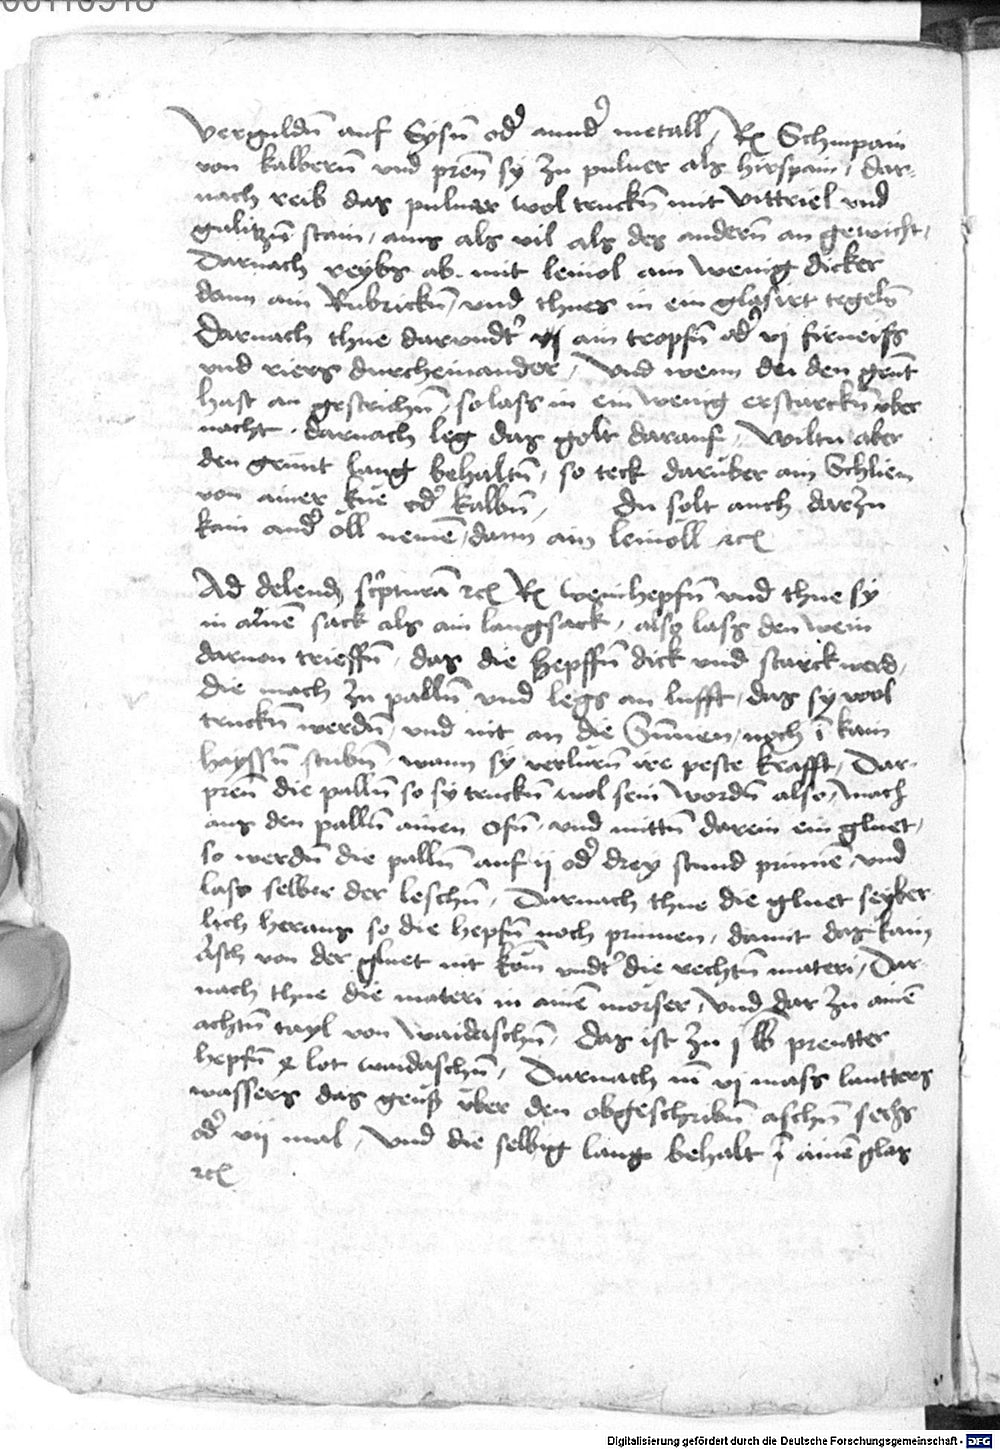 Verguldn̄ auf Eysn̄ od' annd' metall, Rx Schinpain
von kalbern̄ vnd pren̄ sy zu puluer als hirspain, dar-
nach reib das puluer wol truckn̄ mit Vittriel vnd
galitzn̄ stain, ains als vil als des andern̄ an gewicht,
Darnach reybs ab mit leinol ain wenig dicker
dann ain Rubrickn̄, vnd thues in ein glasirt tegels
Darnach thue darundt' ain tropfn̄ od' vj firneiss
vnd riers durcheinander, Vnd wenn du den grūt
hast an gestrichn̄, so lass in ein wenig erstarckn̄ vber
nacht. darnach leg das golt darauf, Wiltu aber
den grunt lang behaltn̄, so teck daruber ain Schliem
von ainer kue od' kalbn̄, du solt auch darzu
kain and' öll nemē, dann ain leinöll etc
Ad delend sc'pturā etc Rx weinhepfn̄ vnd thue sy
in ainē sack als ain langsack, also lass den wein
daruon trieffn̄, das die hepffn̄ dick vnd starck werd,
die mach zu palln̄ vnd legs an lufft, das sy wol
truckn̄ werdn̄, vnd nit an die Sunnen, noch ī kain
hayssn̄ stubn̄, wann sy verlurn̄ ire peste krafft, Dar-
pren̄ die palln̄ so sy truckn̄ wol sein wordn̄ also, mach
aus den palln̄ ainen ofn̄, vnd mittn̄ darein ein gluet,
so werdn̄ die palln̄ auf ij od' drey stund prinnē, vnd
lass selber der leschn̄, Darnach thue die gluet seyber
lich heraus so die hepfn̄ noch prinnen, damit das kain
äsch von der gluet nit kom̄ vndt' die rechtn̄ materi, Dar-
nach thue die materi in ainē mörser, vnd dar zu ainē
achtn̄ tayl von Waidaschn̄, das ist zu j lb prentter
hepfn̄ 4 lot waidaschn̄, Darnach nī vj mass lautters
wassers das geuß vber den obgeschribn̄ aschn̄ sechs
od' vij mal, Vnd die selbig laug behalt ī ainē glas
etc